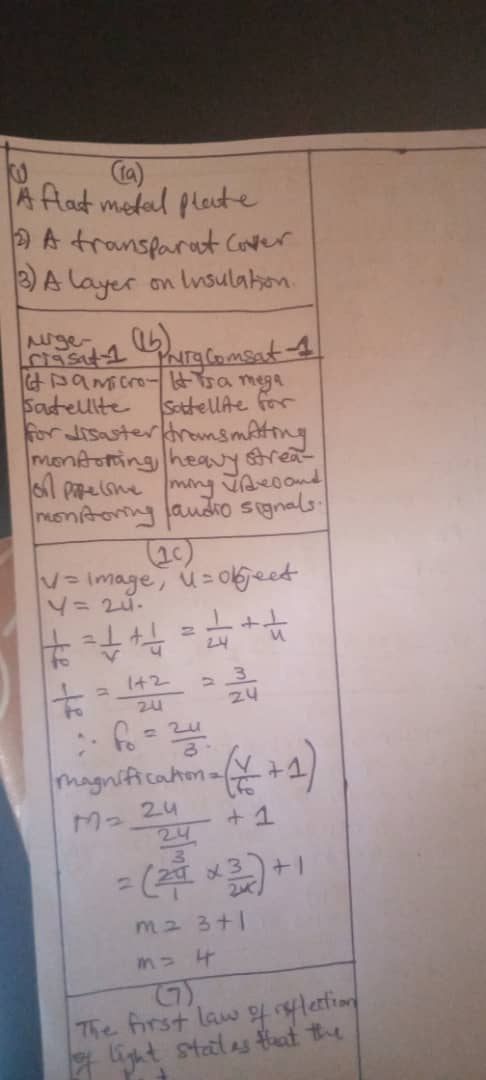 (1a)
1) A flat metal plate
2) A transparat Cover
3) A layer on Insulation.
(1b)
Nige-
riasat-1
It is a micro-
satellite
for disaster
monitoring,
oil pipeline
monitoring
NigComsat-1
It is a mega
satellite for
transmiting
heavy strea-
ming video and
audio signals.
(1c)
V = image, u = object
V = 2u.
1/fo = 1/V + 1/u = 1/2u + 1/u
1/fo = 1+2/2u = 3/2u
∴ fo = 2u/3.
magnification = (V/fo + 1)
M = 2u/(2u/3) + 1
= (2u/1 x 3/2u) + 1
m = 3+1
m = 4
(7)
The first law of reflection
of light states that the